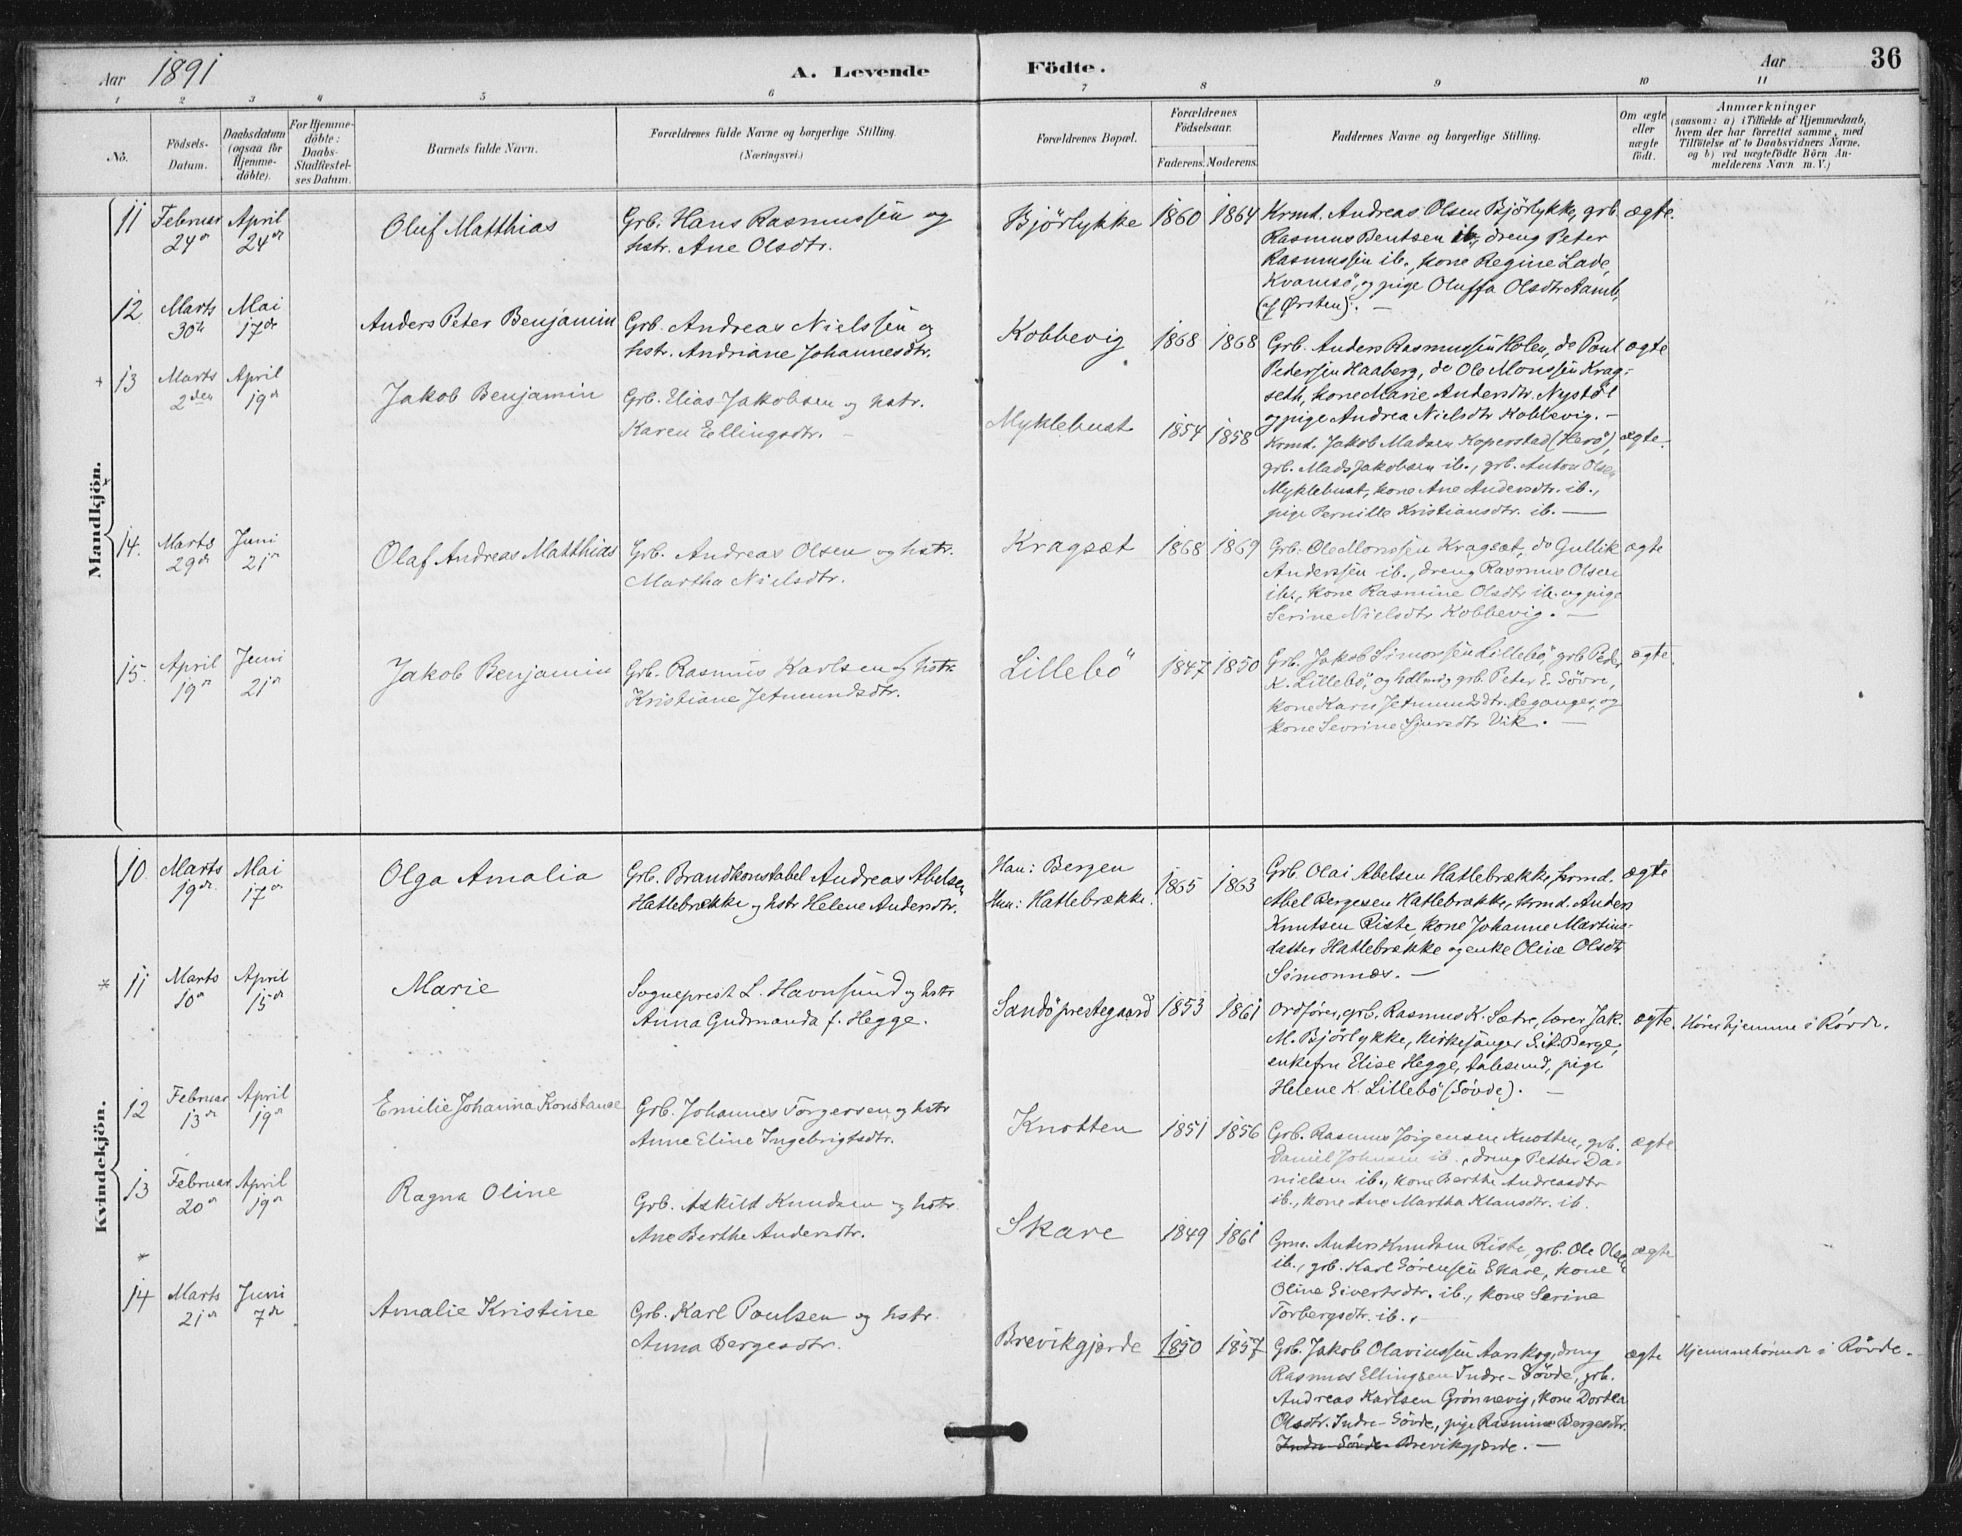 Aar 1891
A. Levende Födte.
Aar
36
1 2 3 4 5 6 7 8 9 10 11
No.
Födsels-Datum.
Daabsdatum (ogsaa for Hjemme-döbte).
For Hjemme-döbte: Daabs-Stadfæstel-ses Datum.
Barnets fulde Navn.
Forældrenes fulde Navne og borgerlige Stilling.
(Næringsvei.)
Forældrenes Bopæl.
Forældrenes Födselsaar.
Faderens. Moderens.
Faddernes Navne og borgerlige Stilling.
Om ægte eller uægte födt.
Anmærkninger
(saasom: a) i Tilfælde af Hjemmedaab, hvem der har forrettet samme, med Tilföielse af to Daabsvidners Navne, og b) ved uægtefödte Börn An-melderens Navn m. V.)
Mandkjön.
11 Februar 24de April 24de Oluf Matthias
Grb. Hans Rasmussen og
hstr. Ane Olsdtr.
Bjørlykke 1860 1864
Krmd. Andreas Olsen Bjørlykke, grb.
Rasmus Bentsen ib., dreng Peter
Rasmussen ib., kone Regine Lade,
Kvamsö, og pige Oluffa Olsdtr Aamb,
(af Ørsten). —
ægte.
12 Marts 30te Mai 17de Anders Peter Benjamin
Grb. Andreas Nielssen og
hstr. Andriane Johannesdtr.
Kobbevig 1868 1868
Grb. Anders Rasmussen Holen, do Poul
Pedersen Haaberg, do Ole Monssen Krag-
seth, kone Marie Andersdtr. Nystøl
og pige Andrea Nielsdtr Kobbevig. —
ægte
13 Marts 2den April 19de Jakob Benjamin
Grb. Elias Jakobsen og hstr.
Karen Ellingsdtr. —
Myklebust 1854 1858
Krmd. Jakob Madsen Koperstad (Herö),
grb. Mads Jakobsen ib., grb. Anton Olsen
Myklebust, kone Ane Andersdtr. ib.,
pige Pernille Kristiansdtr. ib. —
ægte.
14. Marts 29de Juni 21de Olaf Andreas Matthias
Grb. Andreas Olsen og hstr.
Martha Nielsdtr.
Kragsæt 1868 1869
Grb. Ole Monssen Kragsæt, do Gullik
Anderssen ib., dreng Rasmus Olsen
ib., kone Rasmine Olsdtr ib. og pige
Serine Nielsdtr Kobbevig. —
ægte
15. April 19de Juni 21de Jakob Benjamin
Grb. Rasmus Karlsen og hstr.
Kristiane Jetmundsdtr.
Lillebö 1847 1850
Grb. Jakob Simonsen Lillebö, grb Peder
K. Lillebö, og grb. Peter E. Søvre,
kone Karn Jetmundsdtr. Leganger, og
kone Sevrine Sjursdtr Vik. —
ægte.
Kvindekjön.
10 Marts 19de Mai 17de Olga Amalia
Grb. Brandkonstabel Andreas Abelsen
Hatlebrække og hstr Helene Andersdtr.
Han: Bergen
Hun: Hatlebrække. 1865 1863
Grb. Olai Abelsen Hatlebrække, krmd.
Abel Bergesen Hatlebrække, krmd. Anders
Knutsen Riste, kone Johanne Martins-
datter Hatlebrække og enke Oline Olsdtr
Simonnæs. —
ægte
11 Marts 10de April 15de Marie
Sogneprest L. Havnsund og hstr
Anna Gudmanda f. Hegge.
Sandö prestegaard 1853 1861
Ordfører, grb. Rasmus K. Sætre, lærer Jak.
M. Bjørlykke, kirkesanger Berge,
enkefru Elise Hegge, Aalesund, pige
Helene K. Lillebö (Søvde). —
ægte. Hører hjemme i Røvde.
12 Februar 13de April 19de Emilie Johanna Konstanse
Grb. Johannes Torgersen og hstr
Anne Eline Ingebrigtsdtr.
Knotten 1851 1856
Grb. Rasmus Jörgensen Knotten, grb.
Daniel Johnsen ib., dreng Petter Da-
nielsen ib., kone Berthe Andreasdtr
ib., kone Ane Martha Klausdtr. ib.
ægte
13 Februar 20de April 19de Ragna Oline
Grb. Askild Knudsen og hstr.
Ane Berthe Andersdtr.
Skare 1849 1861
Grm. Anders Knudsen Riste, grb. Ole Olsen
ib., grb. Karl Sörensen Skare, kone
Oline Sivertsdtr. ib., kone Serine
Torbergsdtr. ib.,
ægte
14 Marts 21de Juni 7de Amalie Kristine
Grb. Karl Poulsen og hstr.
Anna Bergesdtr.
Brevikgjærde 1850 1857
Grb. Jakob Olavinssen Aarskog, dreng
Rasmus Ellingsen Indre-Søvde, grb.
Andreas Karlsen Grönnevig, kone Dorthea
Olsdtr. Indre-Søvde, pige Rasmine Bergesdtr.
Indre Søvde Brevikgjærde. —
ægte Hjemmehørende i Røvde.